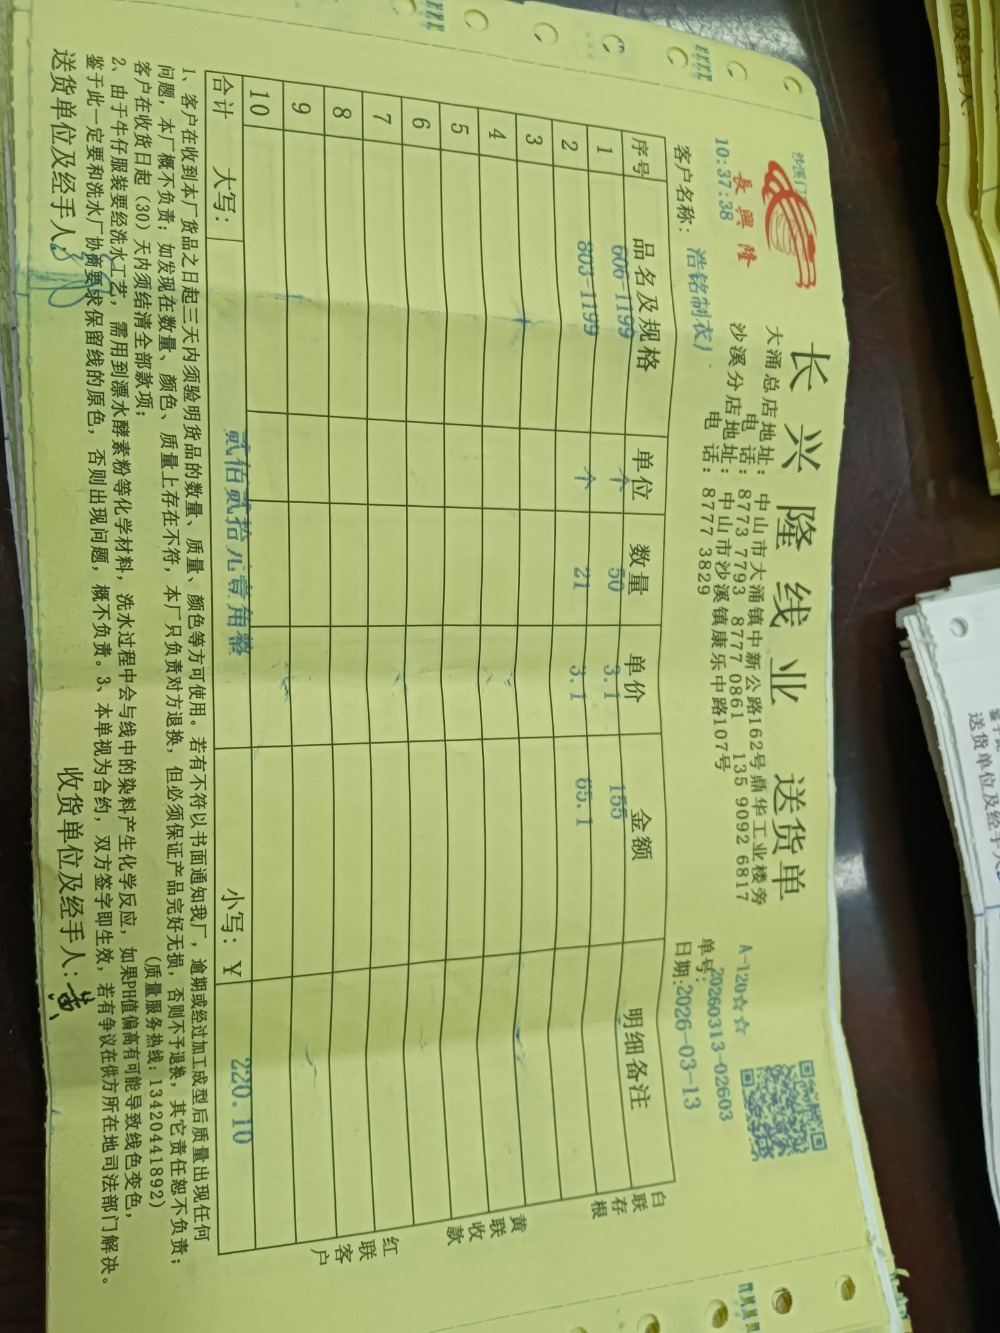 沙溪门
10:37:38
長興隆
长兴隆线业 送货单
大涌总店地址: 中山市大涌镇中新公路162号鼎华工业楼旁
电 话: 8773 7793 8777 0861 135 9092 6817
沙溪分店地址: 中山市沙溪镇康乐中路107号
电 话: 8777 3829
A-120☆☆
单号: 20260313-02603
日期: 2026-03-13
客户名称: 浩铭制衣厂
序号 品名及规格 单位 数量 单价 金额 明细备注
1 606-1199 个 50 3.1 155
2 803-1199 个 21 3.1 65.1
3
4
5
6
7
8
9
10
合计 大写: 贰佰贰拾元壹角整 小写: ¥ 220.10
白联存根
黄联收款
红联客户
1、客户在收到本厂货品之日起三天内须验明货品的数量、质量、颜色等方可使用。若有不符以书面通知我厂,逾期或经过加工成型后质量出现任何
问题,本厂概不负责;如发现在数量、颜色、质量上存在不符,本厂只负责对方退换,但必须保证产品完好无损,否则不予退换,其它责任恕不负责;
客户在收货日起(30)天内须结清全部款项; (质量服务热线:13420441892)
2、由于牛仔服装要经洗水工艺,需用到漂水酵素粉等化学材料,洗水过程中会与线中的染料产生化学反应,如果PH值偏高有可能导致线色变色,
鉴于此一定要和洗水厂协商要求保留线的原色,否则出现问题,概不负责。3、本单视为合约,双方签字即生效,若有争议在供方所在地司法部门解决。
送货单位及经手人: 收货单位及经手人: 黄
送货单位及经手人